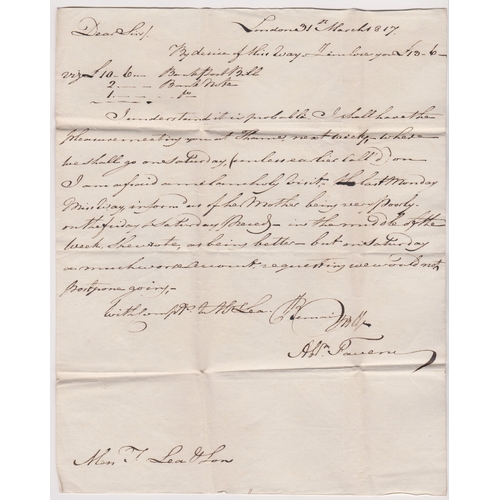 Dear Sirs/ London 31st March 1817.
By desire of Miss Way – I inclose you £13-6-
viz £10-6 — Bank Post Bill
2 — — Bank Note
1 — — Do
I understand it is probable I shall have the
pleasure meeting you at Thame, next week, where
we shall go on Saturday, (unless earlier call'd) on
I am afraid a melancholy visit. last Monday
Miss Way, inform'd us of the Mother being very poorly
on the friday & Saturday – in the middle of the
week, she wrote, as being better – but on Saturday
a much worse account, requesting we wouldn't
postpone going,–
with compts to Mr Lea. I Remain
Abm Taverner
Mess T Lea & Son